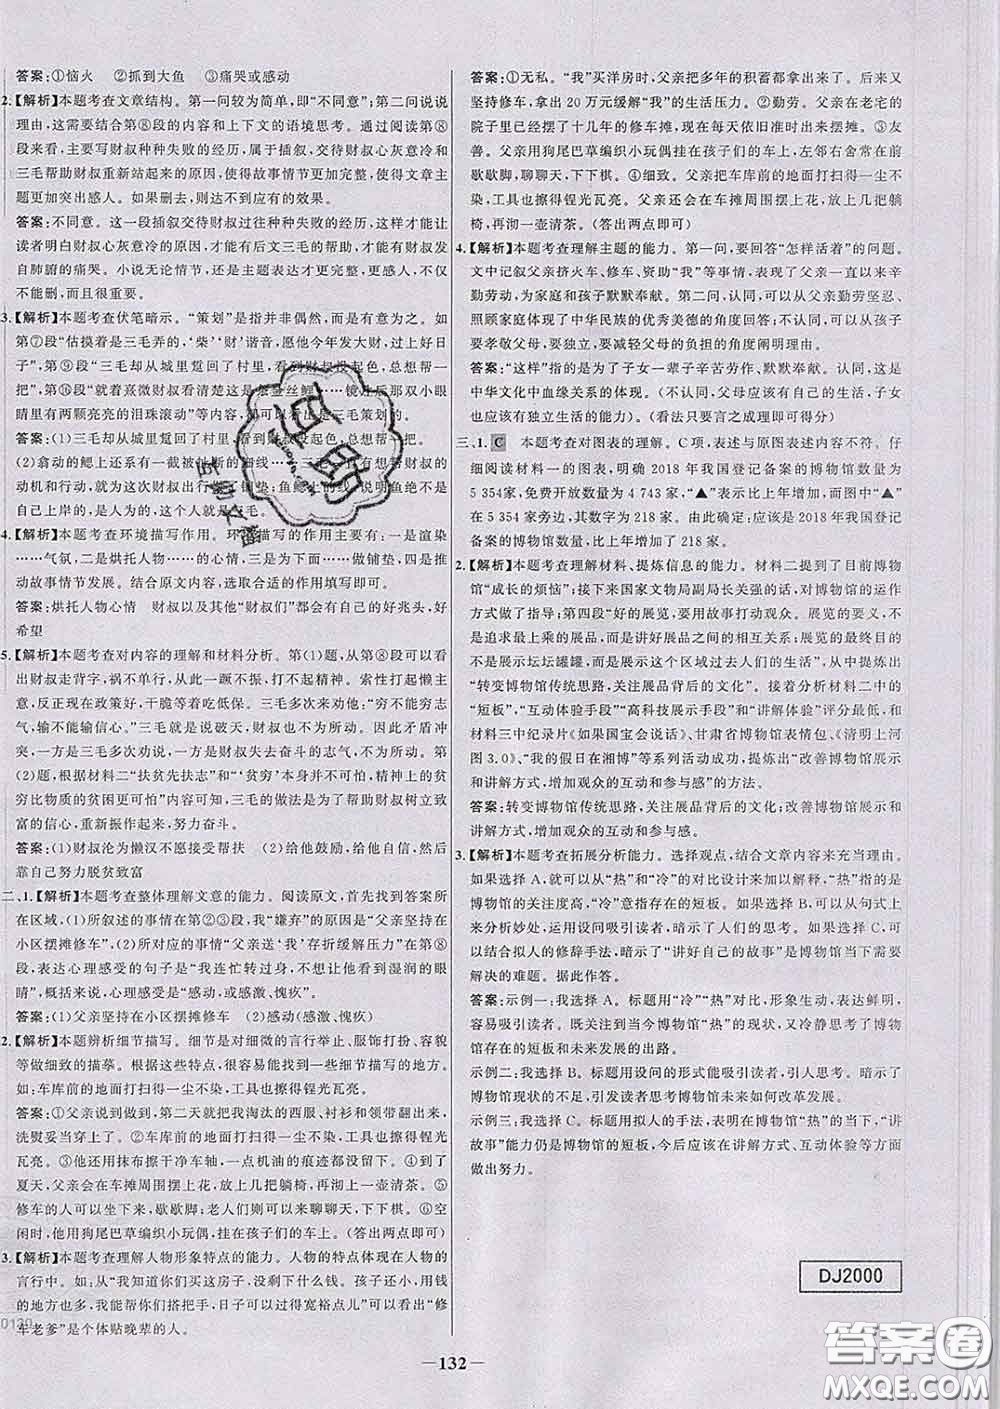 答案:①恼火　②抓到大鱼　③痛哭或感动
2.【解析】本题考查文章结构。第一问较为简单,即“不同意”;第二问说说
理由,需要结合第⑧段的内容和上下文的语境思考。通过阅读第⑧
段来看,这段写了财叔种种失败的经历,属于插叙,交待财叔心灰意冷和
三毛帮助财叔重新站起来的原因,使得故事情节更加完整,使得文章主题
打动人心。如果删去,则达不到应有的效果。
答案:不同意。这一段插叙交待财叔过往种种失败的经历,这样才能让
读者明白财叔心灰意冷的原因,才能有后文三毛的帮助,才能有财叔发
自肺腑的痛哭。小说无论情节,还是主题表达才能更丰满,更感人,不仅
不能删,而且很重要。
3.【解析】本题考查伏笔暗示。“策划”是指并非偶然,而是有意为之。如
第⑦段“估摸着是三毛弄的,‘柴’‘财’谐音,愿他今年发大财,过上好日
子”,第⑨段“三毛却从城里踅回了村里,看到财叔没起色,总想帮他一
把”,第⑯段“就着熹微财叔看清楚这
镜片后那双小眼
睛里有两颗亮亮的泪珠滚动”等内容,
三毛策划的。
答案:(1)三毛却从城里踅回了村里,看到财叔没起色,总想帮他一把。
(2)翕动的鳃上还有一截被扯断的
有想帮财叔的
动机和行动,为他帮财叔出
铺垫;鱼鳃上的
自己上来的,而是有人故意放的,这个人就是三毛。
4.【解析】本题考查环境描写作用。环境描写的作用主要有:一是渲染
……气氛,二是烘托人物……的心情,三是为下面……做铺垫,四是
推动故事情节发展。结合原文内容,选取合适的作用填写即可。
答案:烘托人物心情　财叔以及其他“财叔们”都有自己的好兆头,好
希望
5.【解析】本题考查对内容的理解和材料分析。第(1)题,从第⑧段可以看
出财叔走背字,干啥啥不中,从此一蹶不振,打不起精神。索性打起懒主
意,听说现在政策好,干脆等着吃低保。三毛多次来劝他:“穷不能穷志
气,输不能输信心。”三毛就是说破天,财叔依然如故。因此矛盾冲
突,一方是三毛多次劝说,一方是财叔失去奋斗的志气,不为所动。第
(2)题,根据材料二“扶贫先扶志”和“‘贫穷’本身并不可怕,精神上的贫
穷比物质的贫困更可怕”等相关内容,三毛的做法是为了帮助财叔树立致
富的信心,重新振作起来,努力奋斗。
答案:(1)财叔沦为懒汉不愿接受帮扶　(2)给他鼓励,给他信心,然后
靠自己努力脱贫致富
二、1.【解析】本题考查整体理解文意的能力。阅读原文,首先找到答案所
在区域,(1)所叙述的事情在第②③段,我“嫌弃”的原因是“父亲坚持在
小区摆摊修车”,(2)所对应的事情“父亲送‘我’存折缓解压力”在第⑧
段,表达心理感受的句子是“我连忙转过身,不想让他看到我湿润的眼
睛”,概括即可,心理感受是“感动,或感激、愧疚”。
答案:(1)父亲坚持在小区摆摊修车　(2)感动(感激、愧疚)
2.【解析】本题辨析细节描写。细节是对细微的言行举止、服饰打扮、容貌
等做细致的描摹。根据这些特点,很容易在文章中找到相关的内容。比
如:车库前的地面打扫得一尘不染,工具也擦得锃光瓦亮。
答案:①父亲总是在第二天就把我淘汰的西服、衬衫和领带翻出来,清
洗熨妥当穿上。②车库前的地面打扫得一尘不染,工具也擦得锃光
瓦亮。③他还用抹布擦干净车轴,一点机油的痕迹都不留。④到了
夏天,父亲在车摊周围摆上花,支几把躺椅,再沏上一壶清茶。⑤
修车的人可以坐下来,歇歇脚;老人们则可以聊聊天,下下棋。⑥闲暇
时光,他用狗尾巴草编织小玩偶,挂在孩子们的车上。(答出两点即可)
3.【解析】本题考查理解人物形象特点的能力。人物的特点体现在人物的
言行中。如:从“我知道你们买了这房子,没剩下什么钱。孩子还小,用钱
的地方也多,我能帮你们搭把手,日子可以过得宽裕点儿”可以看出,“修
车老爹”是个体贴晚辈的人。
答案:①无私。“我”买洋房时,父亲把多年的积蓄都拿出来。父亲又
坚持修车,拿出 20 万元缓解“我”的生活压力。②勤劳。父亲在老宅的
院子里已经摆了十几年的修车摊,现在每天依旧准时出摊。③友
善。父亲用狗尾巴草编织小玩偶挂在孩子们的车上,左邻右舍常来
歇歇脚,聊聊天,下下棋。④细致。父亲把车库前的地面打扫得一尘不
染,工具也擦得锃光瓦亮。夏天还会在车摊周围摆上花,支几把躺
椅,再沏一壶清茶。(答出两点即可)
4.【解析】本题考查理解主题的能力。第一问,要回答“怎样活着”的问题。
文中记叙父亲挤火车、修车、资助“我”等事情,表现了父亲一直以来辛
勤劳动,为家庭和孩子默默奉献。第二问,认同,可以从父亲勤劳坚忍、
照顾家庭体现了中华民族的优秀美德的角度回答;不认同,可以从孩子
要孝敬父母,要独立生活,要减轻父母的负担的角度阐明理由。
答案:“这样”指的是为了子女一辈子辛苦劳作,默默奉献。认同,这是
中华文化中血缘关系的体现。(不认同,父母应该有自己的生活,子女
也应该有独立生活的能力)。(看法只要言之成理即可得分)
三、1. C　本题考查对图表的理解。C 项,表述与原图表述内容不符。仔
细阅读材料一的图表,明确 2018 年我国登记备案的博物馆数量为
5 354家,免费开放数量为 4 743 家,“▲”表示比上年增加,而图中“▲”
在 5 354 家旁边,其数字为 218 家。由此确定:应该是 2018 年我国登记
备案的博物馆数量,比上年增加了 218 家。
2.【解析】本题考查理解材料、提炼信息的能力。材料二提到了目前博物
馆“成长的烦恼”,并结合了国家文物局副局长关强的话,对博物馆的运作
方式做了指导;第四段“好的展览,要用故事打动观众。展览的要义,不
是追求最上乘的展品,而是讲好展品之间的相互关系;展览的最高境界,
不是展示坛坛罐罐,而是展示这个区域过去人们的生活”,从中提炼出
“转变博物馆传统思路,关注展品背后的文化”。接着分析材料二中的
“短板”,“互动体验手段”“高科技展示手段”和“讲解体验”评分最低,和
材料三中纪录片《如果国宝会说话》、甘肃省博物馆表情包、《清明上河
图 3.0》、“我的假日在湘博”等系列活动成功,提炼出“改善博物馆展示
和讲解方式,增加观众的互动和参与感”的方法。
答案:转变博物馆传统思路,关注展品背后的文化;改善博物馆展示和
讲解方式,增加观众的互动和参与感。
3.【解析】本题考查拓展分析能力。选择观点,结合文章内容来充当理由。
如果选择 A,可以从“热”和“冷”的对比设计来加以解释,“热”指的是博
物馆的关注度高,“冷”意味着存在的短板。如果选择 B,可以从句式上
来分析妙处,运用设问引发读者关注,暗示了人们的思考。如果选择 C,可
以结合拟人的修辞手法,暗示了“讲好自己的故事”是博物馆当下需要
解决的难题。据此作答。
答案:示例一:我选择 A。标题用“冷”“热”对比,形象生动,表达鲜明,
容易吸引读者。既关注到当今博物馆“热”的现状,又冷静思考了博物
馆存在的短板和未来发展的出路。
示例二:我选择 B。标题用设问的形式能吸引读者,引人思考。关注博
物馆现状的不足,引发读者思考博物馆未来如何改革发展。
示例三:我选择 C。标题用拟人的手法,表明在博物馆“热”的当下,“讲
故事”能力仍是博物馆的短板,今后应该在讲解方式、互动体验等方面
做出努力。
DJ2000
132
答案圈
MXQE.COM